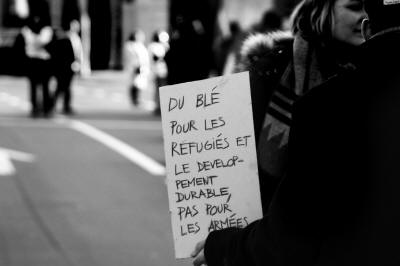 DU BLÉ
POUR LES
RÉFUGIÉS ET
LE DEVELOP-
PEMENT
DURABLE,
PAS POUR
LES ARMÉES